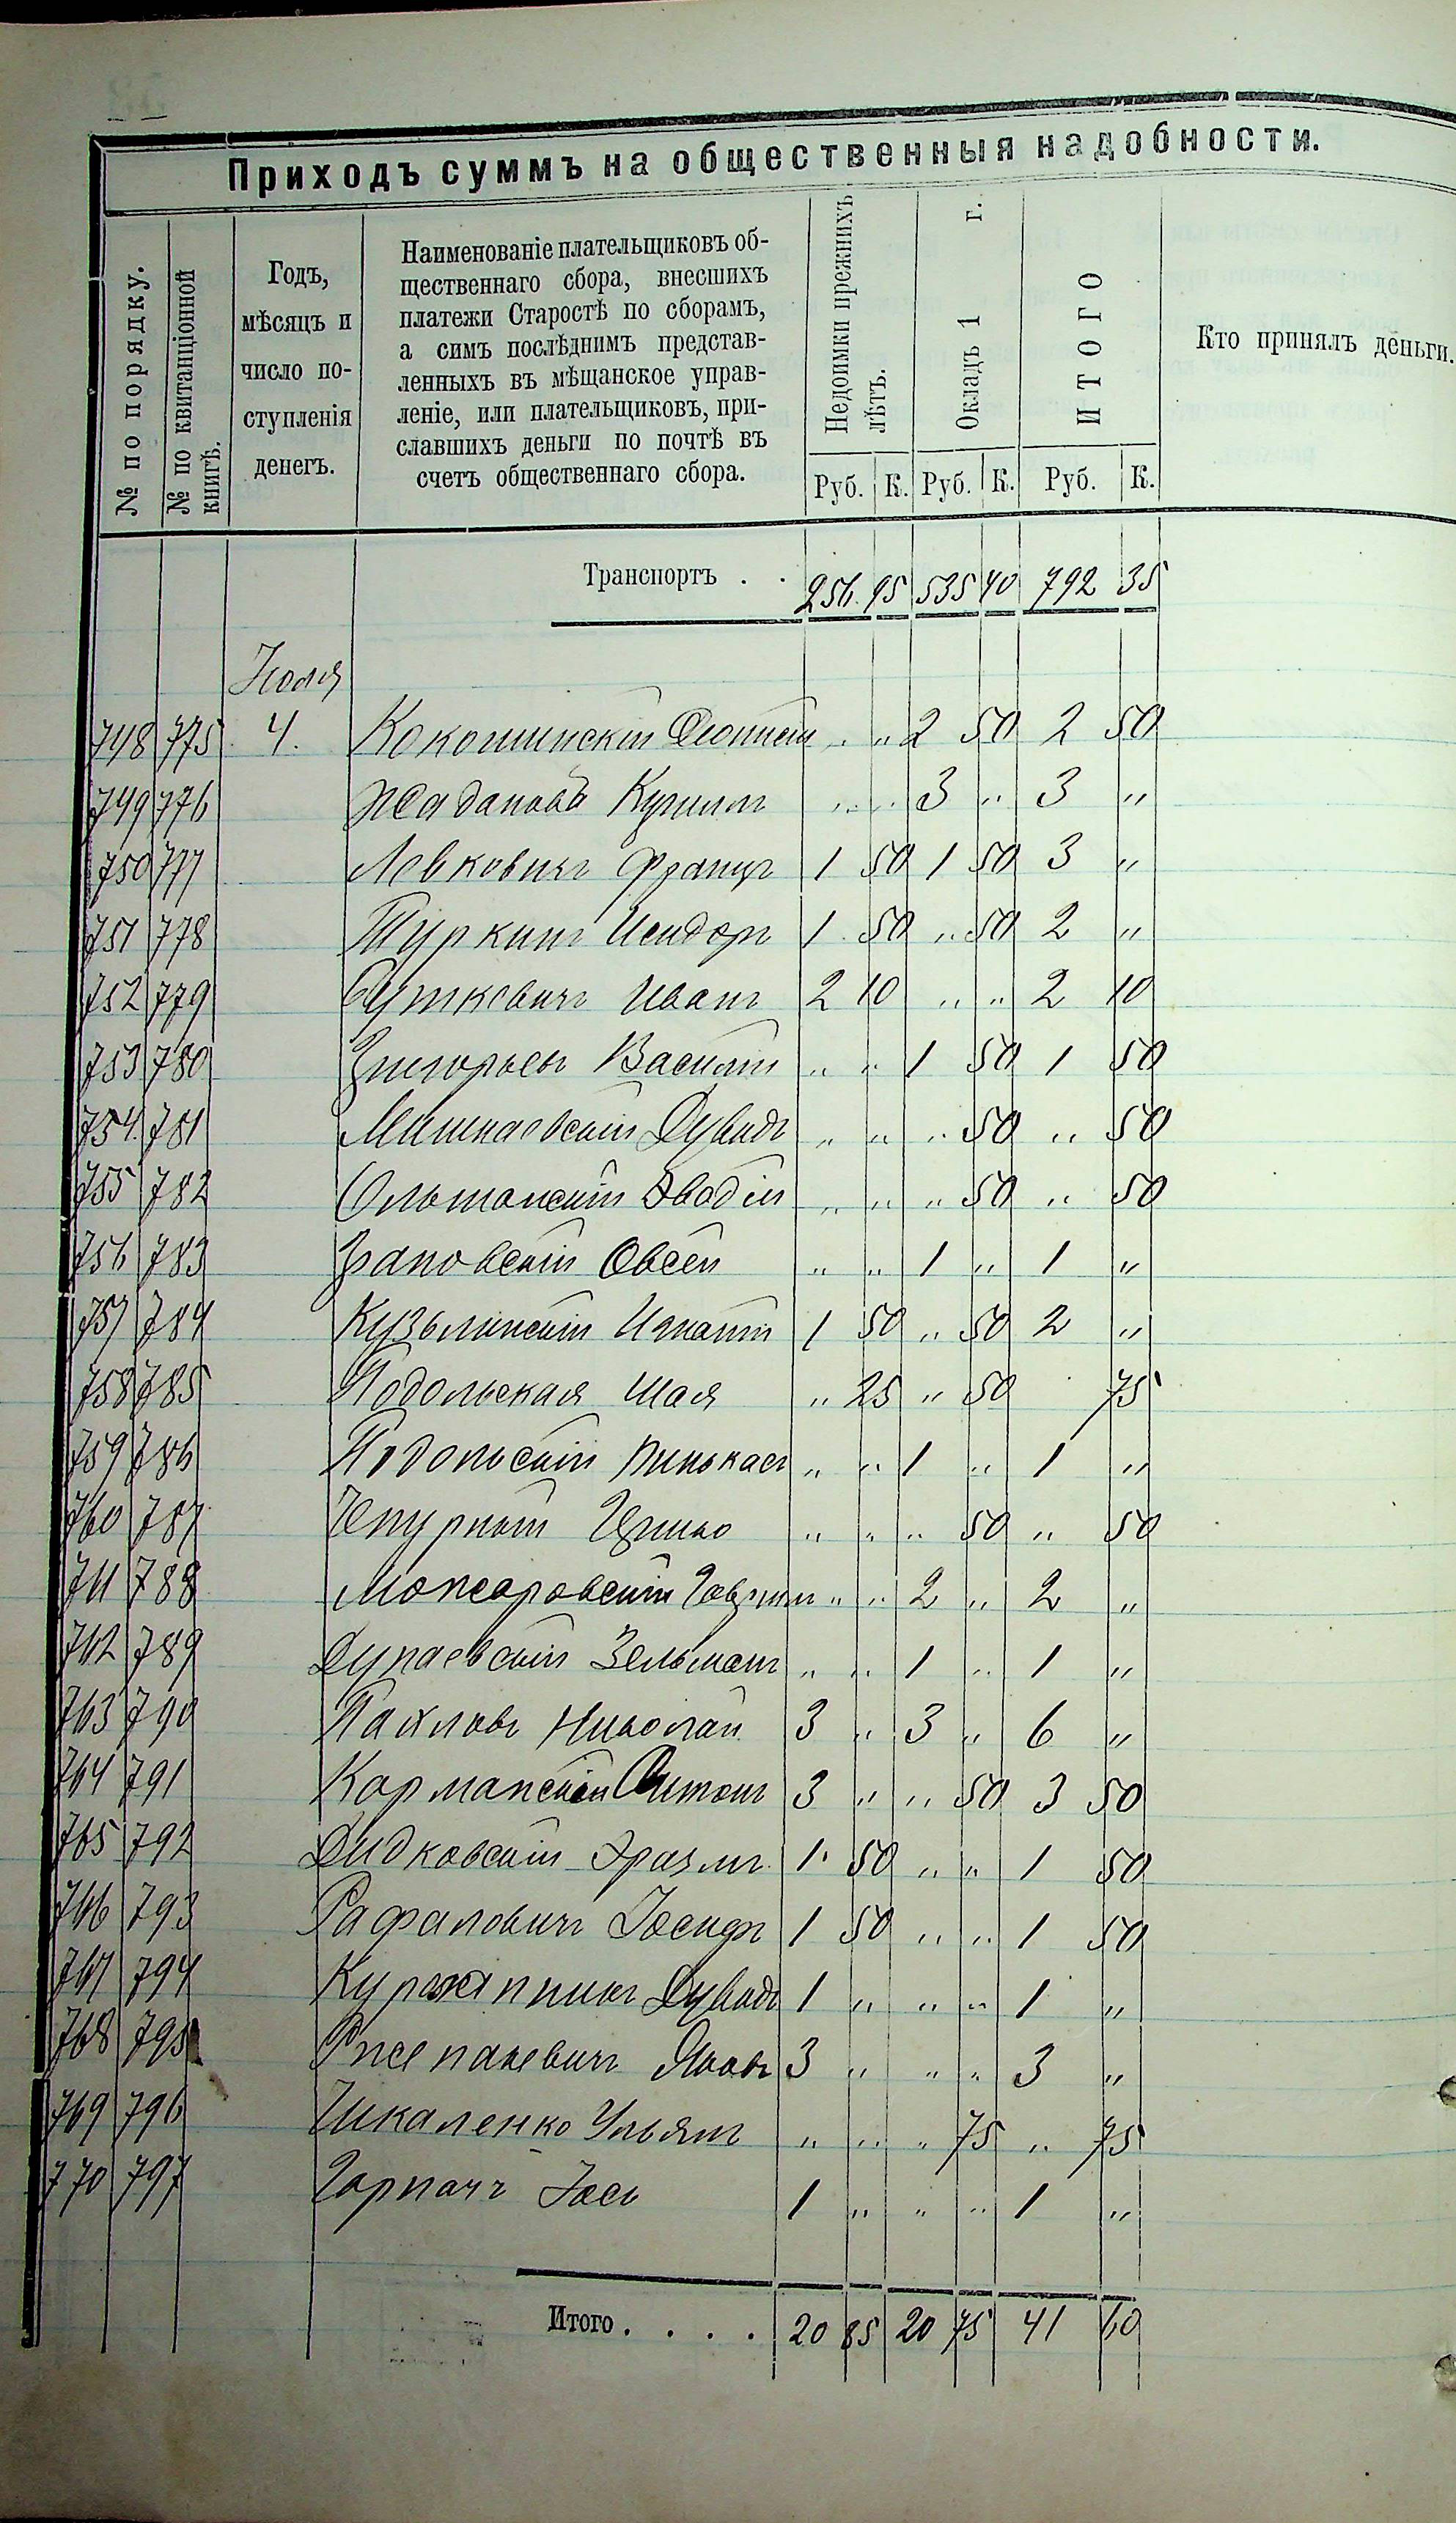 Приходъ суммъ на общественныя надобности.
№ по порядку.
№ по квитанціонной книгѣ.
Годъ, мѣсяцъ и число поступленія денегъ.
Наименованіе плательщиковъ об-
щественнаго сбора, внесшихъ
платежи Старостѣ по сборамъ,
а симъ послѣднимъ представ-
ленныхъ въ мѣщанское управ-
леніе, или плательщиковъ, при-
славшихъ деньги по почтѣ въ
счетъ общественнаго сбора.
Недоимки прежнихъ лѣтъ.
Окладъ 1 г.
ИТОГО
Кто принялъ деньги.
Руб. К. Руб. К. Руб. К.
Транспортъ . . 256 95 535 40 792 35
Іюля
748 775 4. 2 50 2 50
749 776 Жадановъ Кирилъ " " 3 " 3 "
750 777 Левковичъ Францъ 1 50 1 50 3 "
751 778 Туркинъ Исидоръ 1 50 " 50 2 "
752 779 Иванъ 2 10 " " 2 10
753 780 Григорьевъ Василій " " 1 50 1 50
754 781 Мишнаевскій Дувидъ " " " 50 " 50
755 782 Ольшанскій " " " 50 " 50
756 783 Овсей " " 1 " 1 "
757 784 Кузьминскій Игнатій 1 50 " 50 2 "
758 785 Подольская Шая " 25 " 50 75
759 786 Подольскій Пинькасъ " " 1 " 1 "
760 787 Чепурной " " " 50 " 50
761 788 Можаровскій Гаврилъ " " 2 " 2 "
762 789 Дунаевскій Зельманъ " " 1 " 1 "
763 790 Николай 3 " 3 " 6 "
764 791 Карманскій Антонъ 3 " " 50 3 50
765 792 Дидковскій Эразмъ 1 50 " " 1 50
766 793 Рафаловичъ Іосифъ 1 50 " " 1 50
767 794 Дувидъ 1 " " " 1 "
768 795 Яковъ 3 " " " 3 "
769 796 Чикаленко Ульянъ " " " 75 " 75
770 797 Гарпачъ Іось 1 " " " 1 "
Итого . . . . 20 85 20 75 41 60